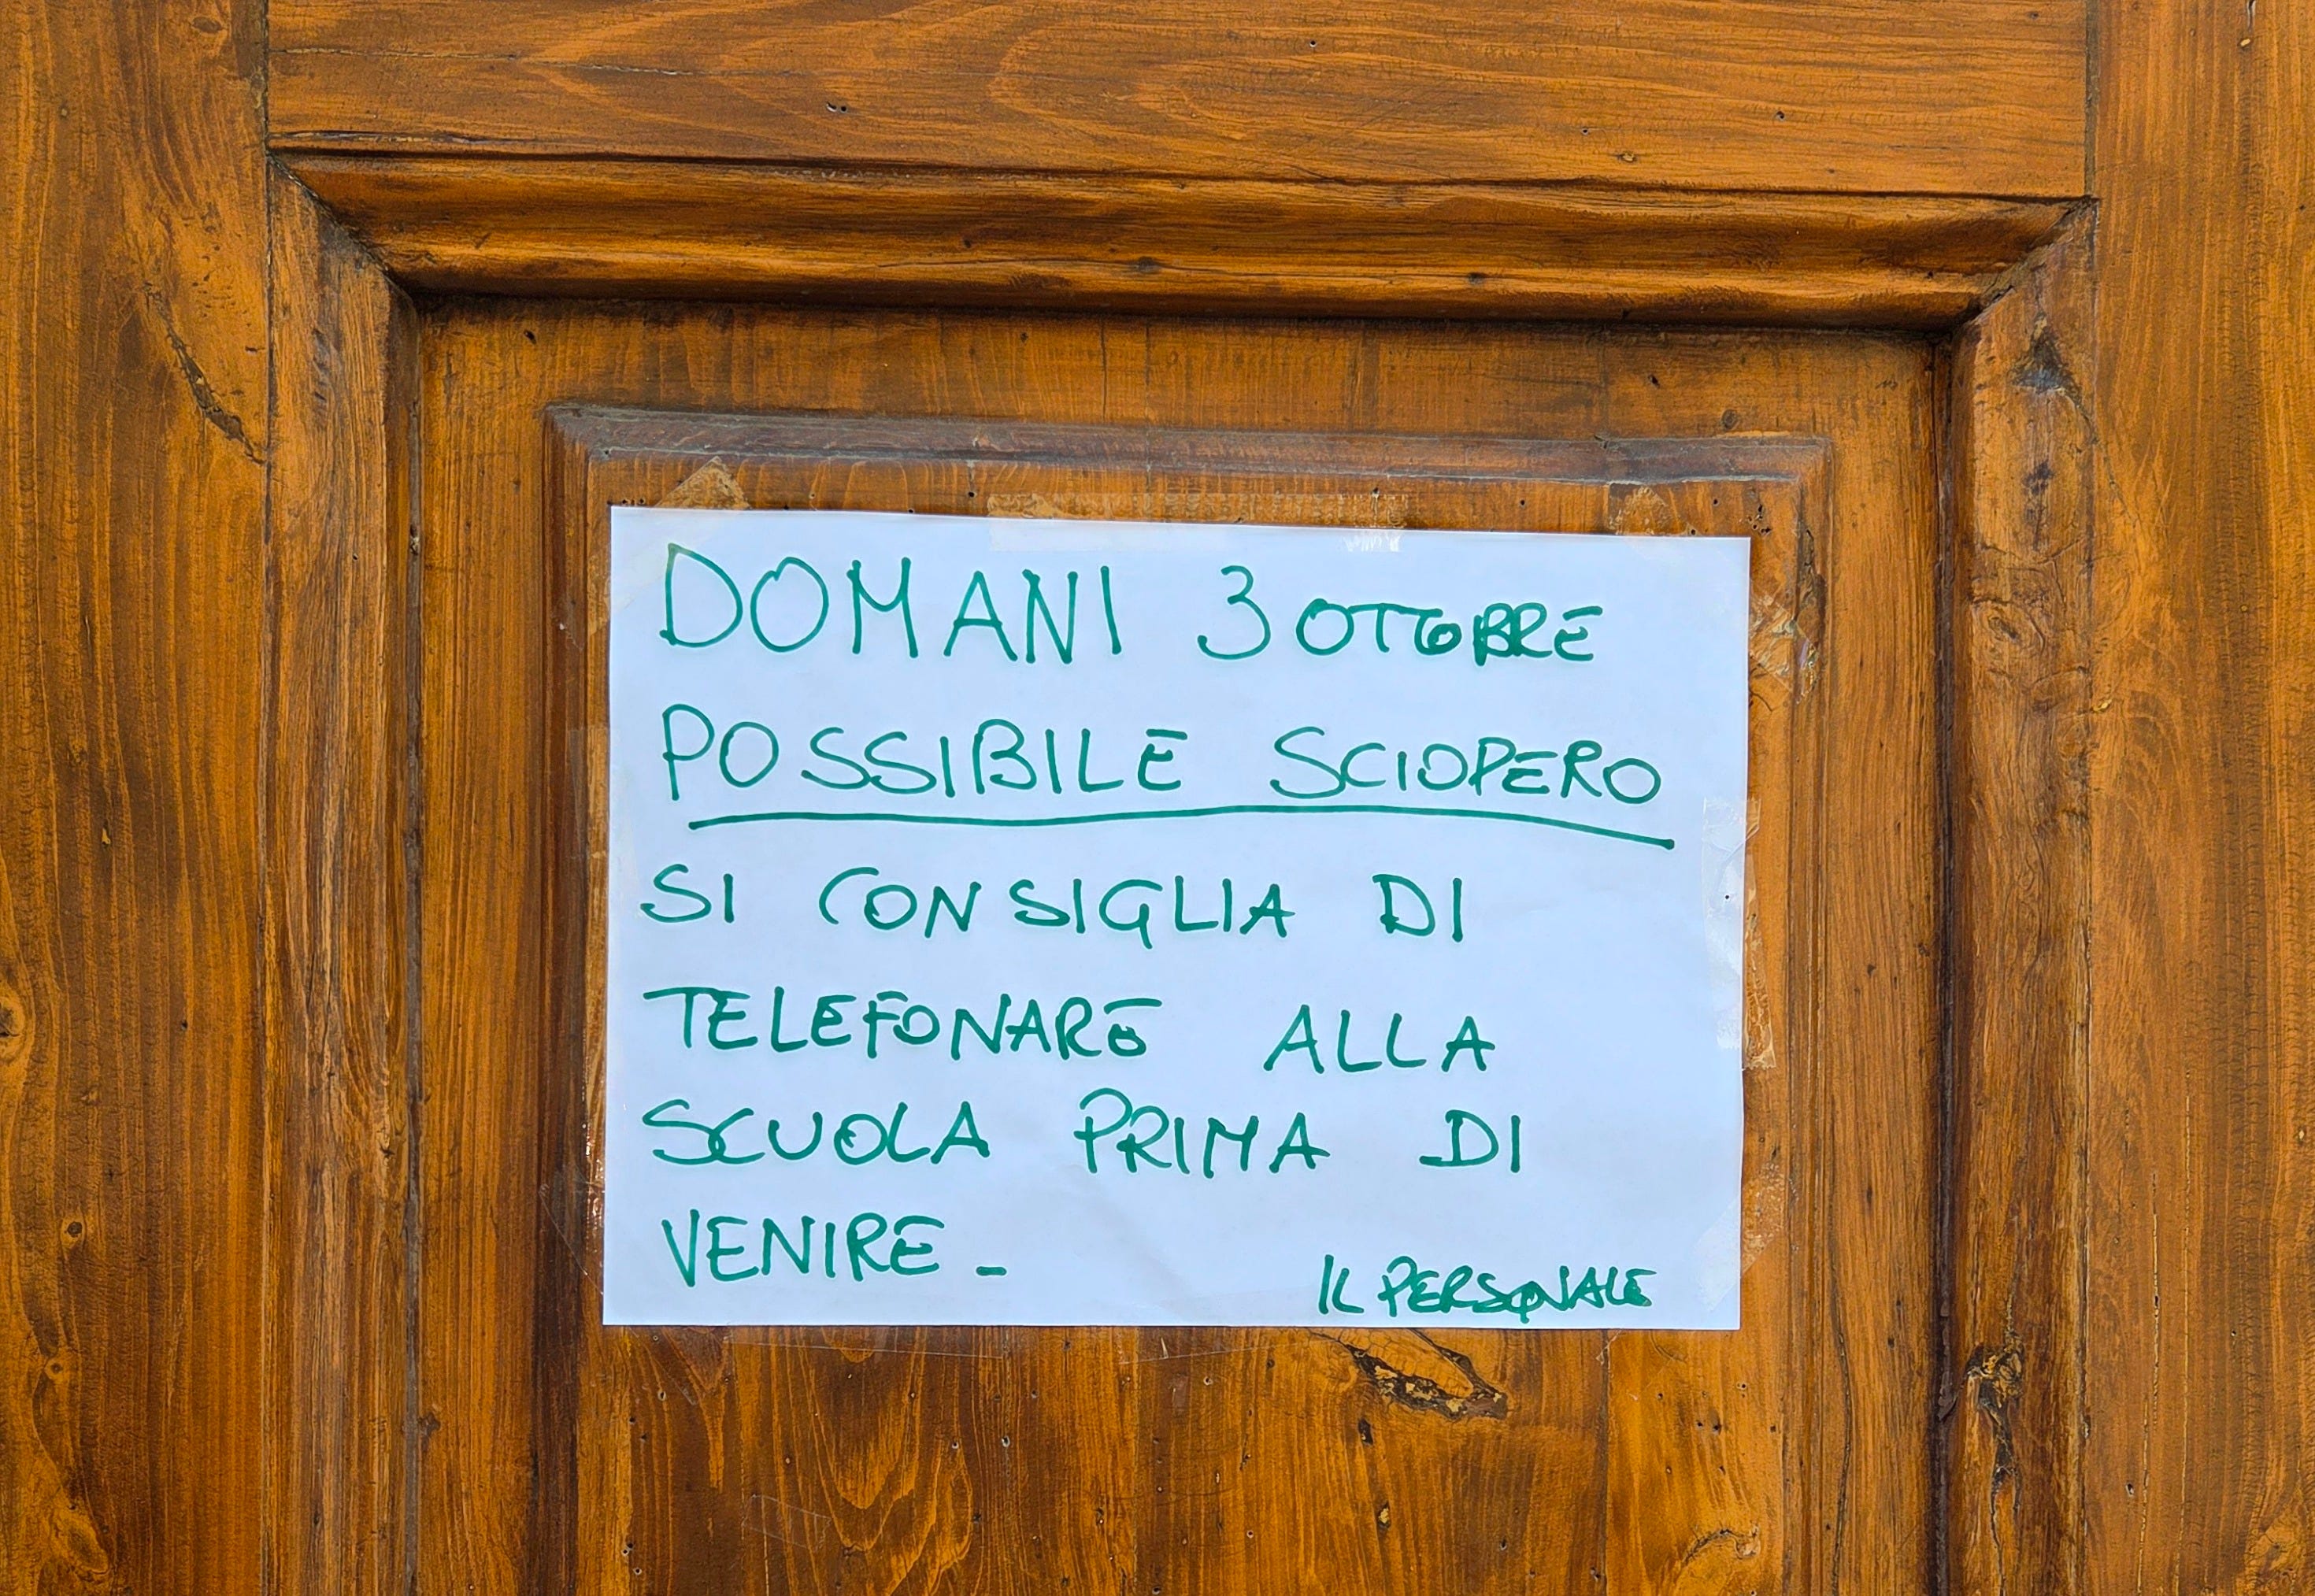 DOMANI 3 OTTOBRE
POSSIBILE SCIOPERO
SI CONSIGLIA DI
TELEFONARE ALLA
SCUOLA PRIMA DI
VENIRE_
IL PERSONALE